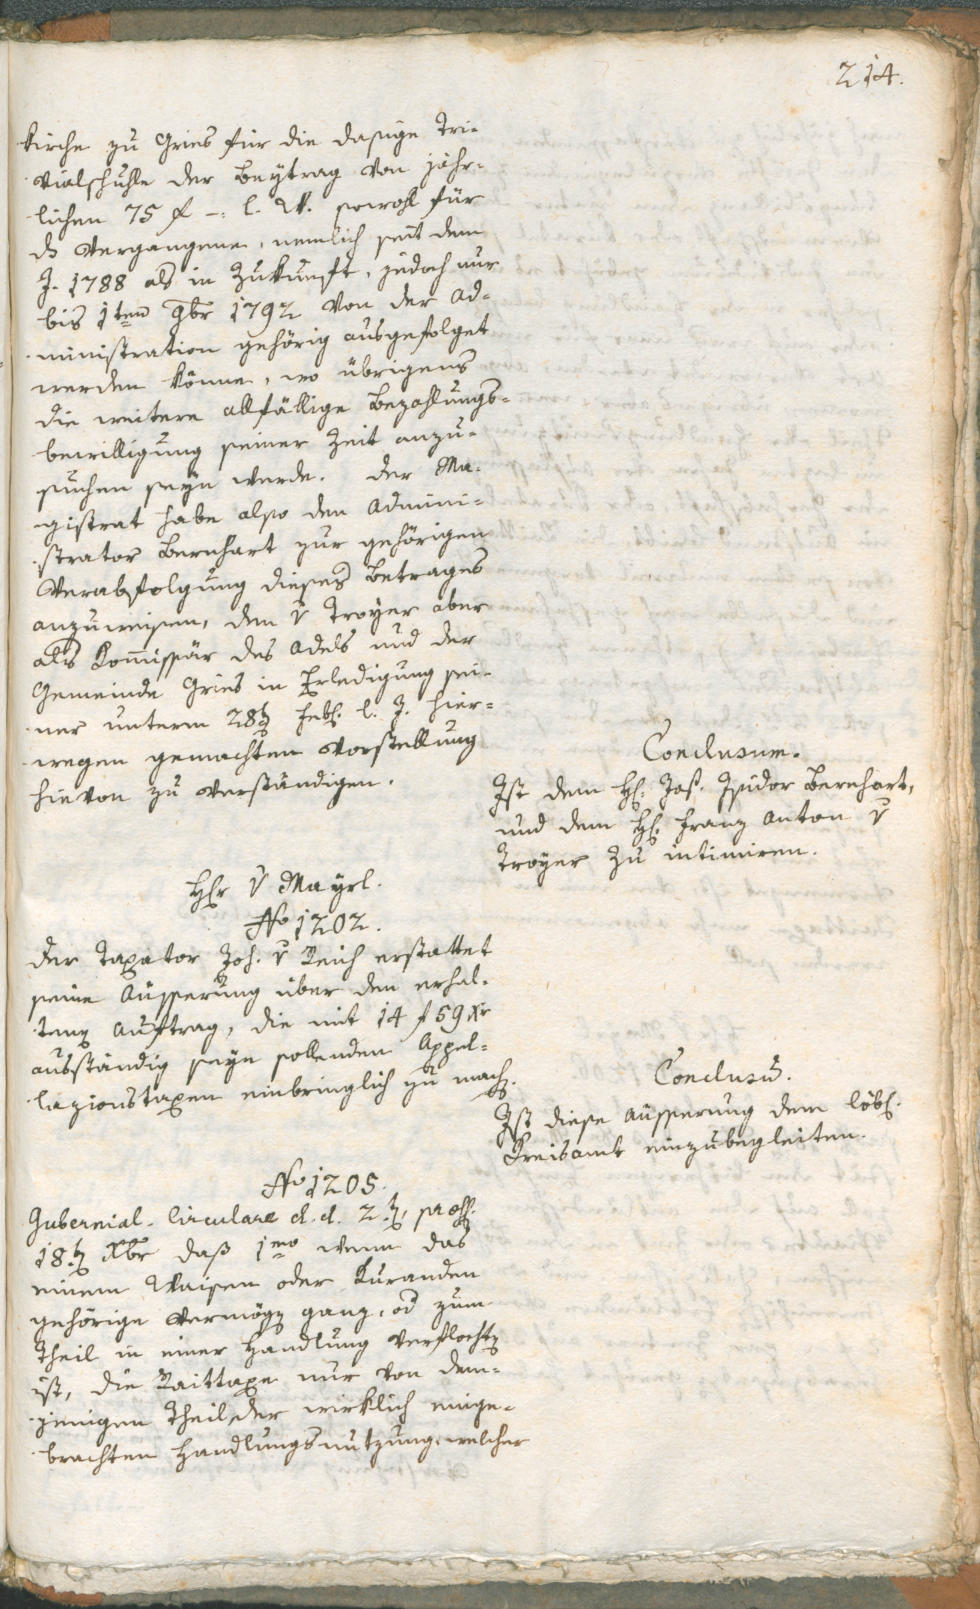 214.
kirche zu Gries für die dasige Tri-
vialschuhle der Beytrag von jähr-
lichen 75 f –: l. W. sowohl für
dz vergangene, nemlich seit dem
J. 1788 als in Zukunft, jedoch nur
bis 1ten 9br 1792 von der Ad-
ministration gehörig ausgefolget
werden könne, wo übrigens
die weitere allfällige Bezahlungs-
bewilligung seiner Zeit anzu-
suchen seyn werde. Der Ma-
gistrat habe also den Admini-
strator Bernhart zur gehörigen
Verabfolgung dieses Betrages
anzuweisen, dem v Troyer aber
als Kommissär des Adels und der
Gemeinde Gries in Erledigung sei-
ner unterm 28 Feb. l. J. hier-
wegen gemachten Vorstellung
hievon zu verständigen.
Conclusum.
Ist dem H. Jos. Isidor Bernhart,
und dem H. Franz Anton v
Troyer zu intimiren.
Hr v Mayrl.
No 1202.
Der Taxator Joh. v Reich erstattet
seine Äusserung über den erhal-
tenen Auftrag, die mit 14 f 59 xr
ausständig seyn sollenden Appel-
lazionstaxen einbringlich zu mach.
Conclusū.
Ist diese Äusserung dem löbl.
Kreisamt einzubegleiten.
No 1205.
Gubernial-Circulare d. d. 2., prs.
18. Xbr daß 1mo wenn das
einem Waisen oder Kuranden
gehörige Vermög ganz, od zum
Theil in einer Handlung verflocht
ist, die Raittaxe nur von dem-
jenigen Theil der wirklich einge-
brachten Handlungsnutzung, welcher